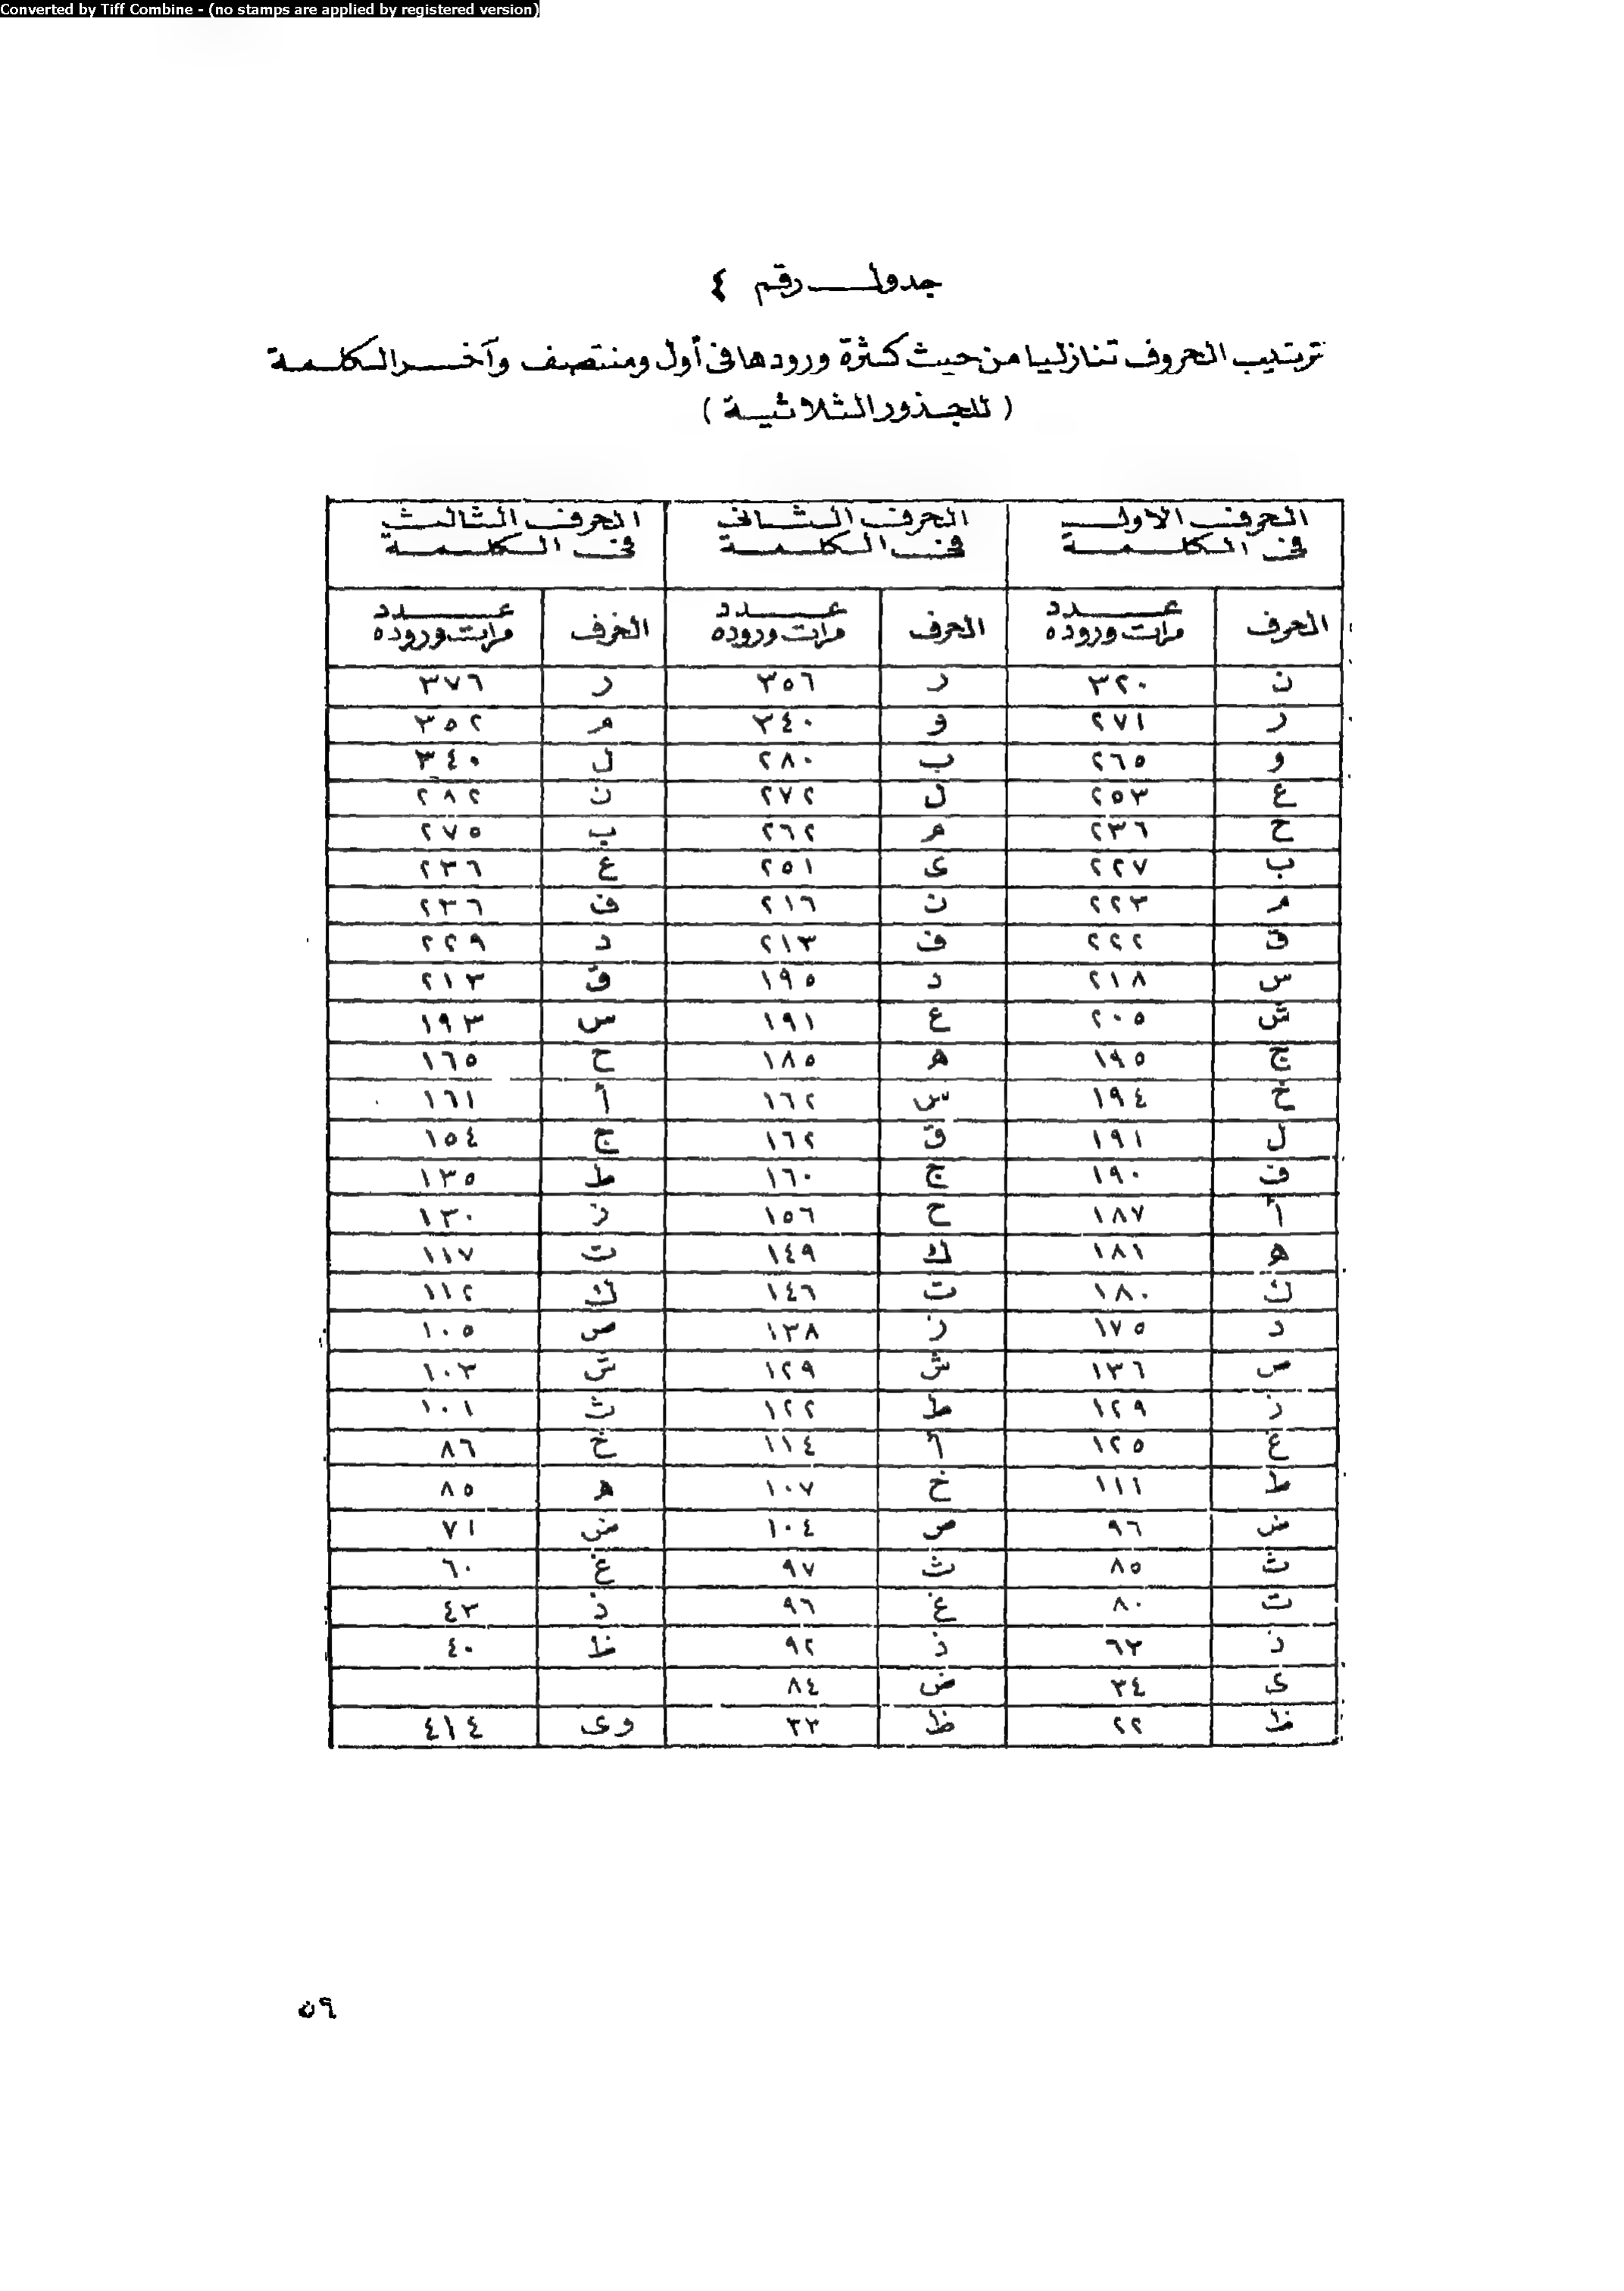 Converted by Tiff Combine - (no stamps are applied by registered version)
جدول رقم ٤
ترتيب الحروف تنازليا من حيث كثرة ورودها فى أول ومنتصف وآخر الكلمة
( للجذور الثلاثية )
الحرف الاول الحرف الثانى الحرف الثالث
فى الكلمة فى الكلمة فى الكلمة
الحرف عدد مرات وروده الحرف عدد مرات وروده الحرف عدد مرات وروده
ن ٣٢٠ ر ٣٥٦ ر ٣٧٦
ر ٢٧١ و ٣٤٠ م ٣٥٢
و ٢٦٥ ب ٢٨٠ ل ٣٤٠
ع ٢٥٣ ل ٢٧٢ ن ٢٨٢
ح ٢٣٦ م ٢٦٢ ب ٢٧٥
ب ٢٢٧ ى ٢٥١ ع ٢٣٦
م ٢٢٣ ن ٢١٦ ف ٢٣٦
ق ٢٢٢ ف ٢١٣ د ٢٢٩
س ٢١٨ د ١٩٥ ق ٢١٣
ش ٢٠٥ ع ١٩١ س ١٩٣
ج ١٩٥ ه ١٨٥ ح ١٦٥
خ ١٩٤ س ١٦٢ أ ١٦١
ل ١٩١ ق ١٦٢ ج ١٥٤
ف ١٩٠ ج ١٦٠ ط ١٣٥
أ ١٨٧ ح ١٥٦ ز ١٣٠
ه ١٨١ ك ١٤٩ ت ١١٧
ك ١٨٠ ت ١٤٦ ك ١١٢
د ١٧٥ ز ١٣٨ ص ١٠٥
ص ١٣٦ ش ١٢٩ ش ١٠٣
ز ١٢٩ ط ١٢٢ ث ١٠١
غ ١٢٥ أ ١١٤ خ ٨٦
ط ١١١ خ ١٠٧ ه ٨٥
ض ٩٦ ص ١٠٤ ض ٧١
ث ٨٥ ث ٩٧ غ ٦٠
ت ٨٠ غ ٩٦ ذ ٤٣
ذ ٦٣ ذ ٩٢ ظ ٤٠
ى ٣٤ ض ٨٤
ظ ٢٢ ظ ٣٣ وى ٤١٤
٥٩